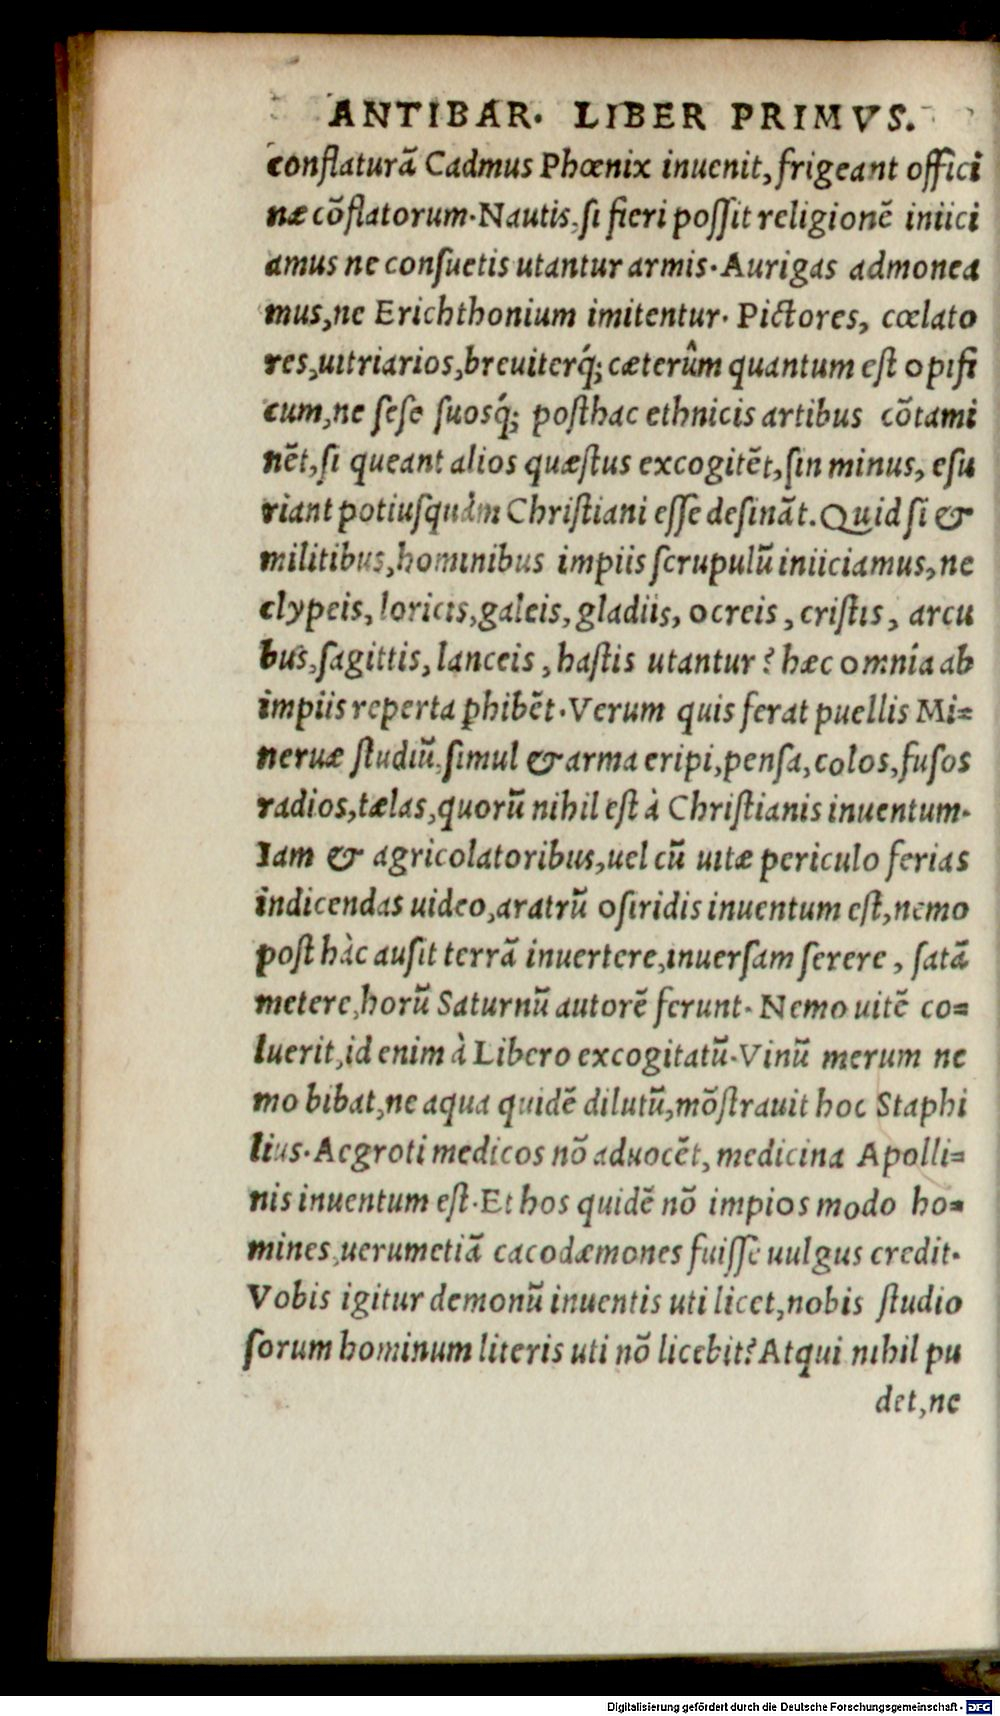 ANTIBAR. LIBER PRIMVS.
conflaturã Cadmus Phœnix inuenit, frigeant offici
næ cõflatorum. Nautis, ſi fieri poſſit religionẽ iniici
amus ne conſuetis utantur armis. Aurigas admonea
mus, ne Erichthonium imitentur. Pictores, cœlato
res, uitriarios, breuiterq́; cæterûm quantum eſt opifi
cum, ne ſeſe ſuosq́; poſthac ethnicis artibus cõtami
nẽt, ſi queant alios quæſtus excogitẽt, ſin minus, eſu
riant potiusquàm Chriſtiani eſſe deſinãt. Quid ſi &
militibus, hominibus impiis ſcrupulũ iniiciamus, ne
clypeis, loricis, galeis, gladiis, ocreis, criſtis, arcu
bus, ſagittis, lanceis, haſtis utantur? hæc omnia ab
impiis reperta ꝓhibẽt. Verum quis ferat puellis Mi=
neruæ ſtudiũ, ſimul & arma eripi, penſa, colos, fuſos
radios, tælas, quorũ nihil eſt à Chriſtianis inuentum.
Iam & agricolatoribus, uel cũ uitæ periculo ferias
indicendas uideo, aratrũ oſiridis inuentum eſt, nemo
poſt hàc auſit terrã inuertere, inuerſam ſerere, ſatã
metere, horũ Saturnũ autorẽ ferunt. Nemo uitẽ co=
luerit, id enim à Libero excogitatũ. Vinũ merum ne
mo bibat, ne aqua quidẽ dilutũ, mõſtrauit hoc Staphi
lius. Aegroti medicos nõ aduocẽt, medicina Apolli=
nis inuentum eſt. Et hos quidẽ nõ impios modo ho=
mines, uerumetiã cacodæmones fuiſſe uulgus credit.
Vobis igitur demonũ inuentis uti licet, nobis ſtudio
ſorum hominum literis uti nõ licebit? Atqui nihil pu
det, ne
Digitalisierung gefördert durch die Deutsche Forschungsgemeinschaft - DFG